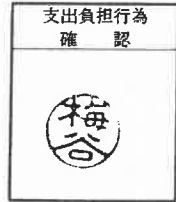 支出負担行為
確　認
梅谷